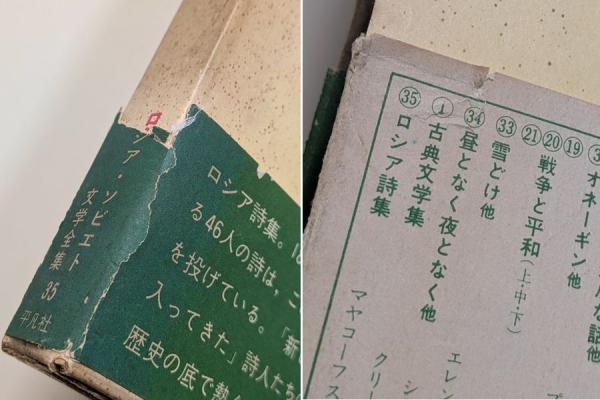 ロシア・ソビエト
文学全集 35
平凡社
ロシア詩集。
る46人の詩は、こ
を投げている。「新
入ってきた」詩人たち
歴史の底で
㉟ ロシア詩集
① 古典文学集
㉞ 昼となく夜となく他
㉝ 雪どけ他
⑲⑳㉑ 戦争と平和(上・中・下)
オネーギン他
な話他
マヤコーフス
クリー
シ
エレン
プ